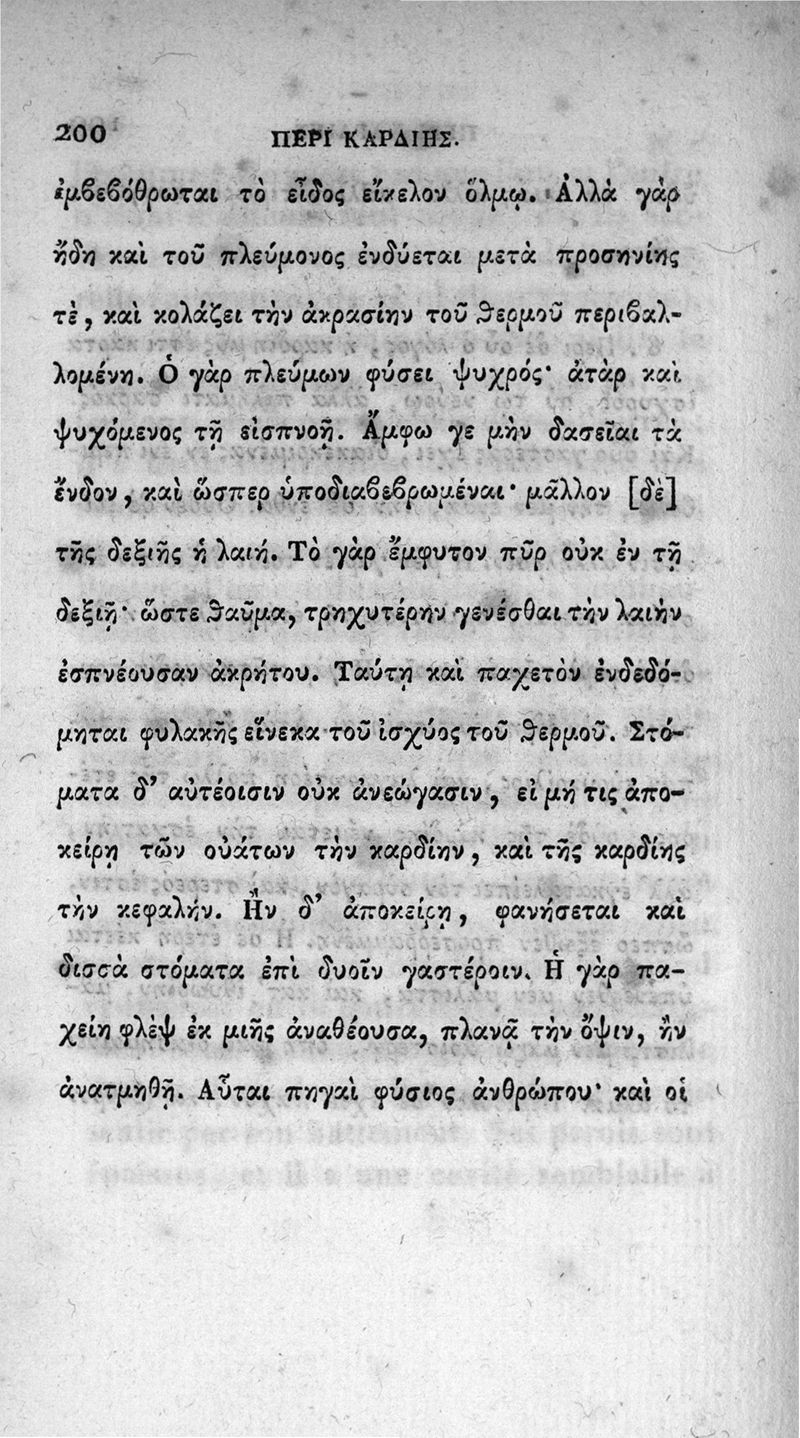 200
ΠΕΡΙ ΚΑΡΔΙΗΣ.
ἐμβεβόθρωται τὸ εἶδος εἴκελον ὅλμῳ. Ἀλλὰ γὰρ
ἤδη καὶ τοῦ πλεύμονος ἐνδύεται μετὰ προσηνίης
τὲ, καὶ κολάζει τὴν ἀκρασίην τοῦ θερμοῦ περιβαλ-
λομένη. Ὁ γὰρ πλεύμων φύσει ψυχρός· ἀτὰρ καὶ
ψυχόμενος τῇ εἰσπνοῇ. Ἄμφω γε μὴν δασεῖαι τὰ
ἔνδον, καὶ ὥσπερ ὑποδιαβεβρωμέναι· μᾶλλον [δὲ]
τῆς δεξιῆς ἡ λαιή. Τὸ γὰρ ἔμφυτον πῦρ οὐκ ἐν τῇ
δεξιῇ· ὥστε θαῦμα, τρηχυτέρην γενέσθαι τὴν λαιὴν
ἐσπνέουσαν ἀκρήτου. Ταύτῃ καὶ παχετὸν ἐνδεδό-
μηται φυλακῆς εἵνεκα τοῦ ἰσχύος τοῦ θερμοῦ. Στό-
ματα δ’ αὐτέοισιν οὐκ ἀνεώγασιν, εἰ μή τις ἀπο-
κείρῃ τῶν οὐάτων τὴν καρδίην, καὶ τῆς καρδίης
τὴν κεφαλήν. Ἢν δ’ ἀποκείρῃ, φανήσεται καὶ
δισσὰ στόματα ἐπὶ δυοῖν γαστέροιν. Ἡ γὰρ πα-
χείη φλὲψ ἐκ μιῆς ἀναθέουσα, πλανᾷ τὴν ὄψιν, ἢν
ἀνατμηθῇ. Αὗται πηγαὶ φύσιος ἀνθρώπου· καὶ οἱ